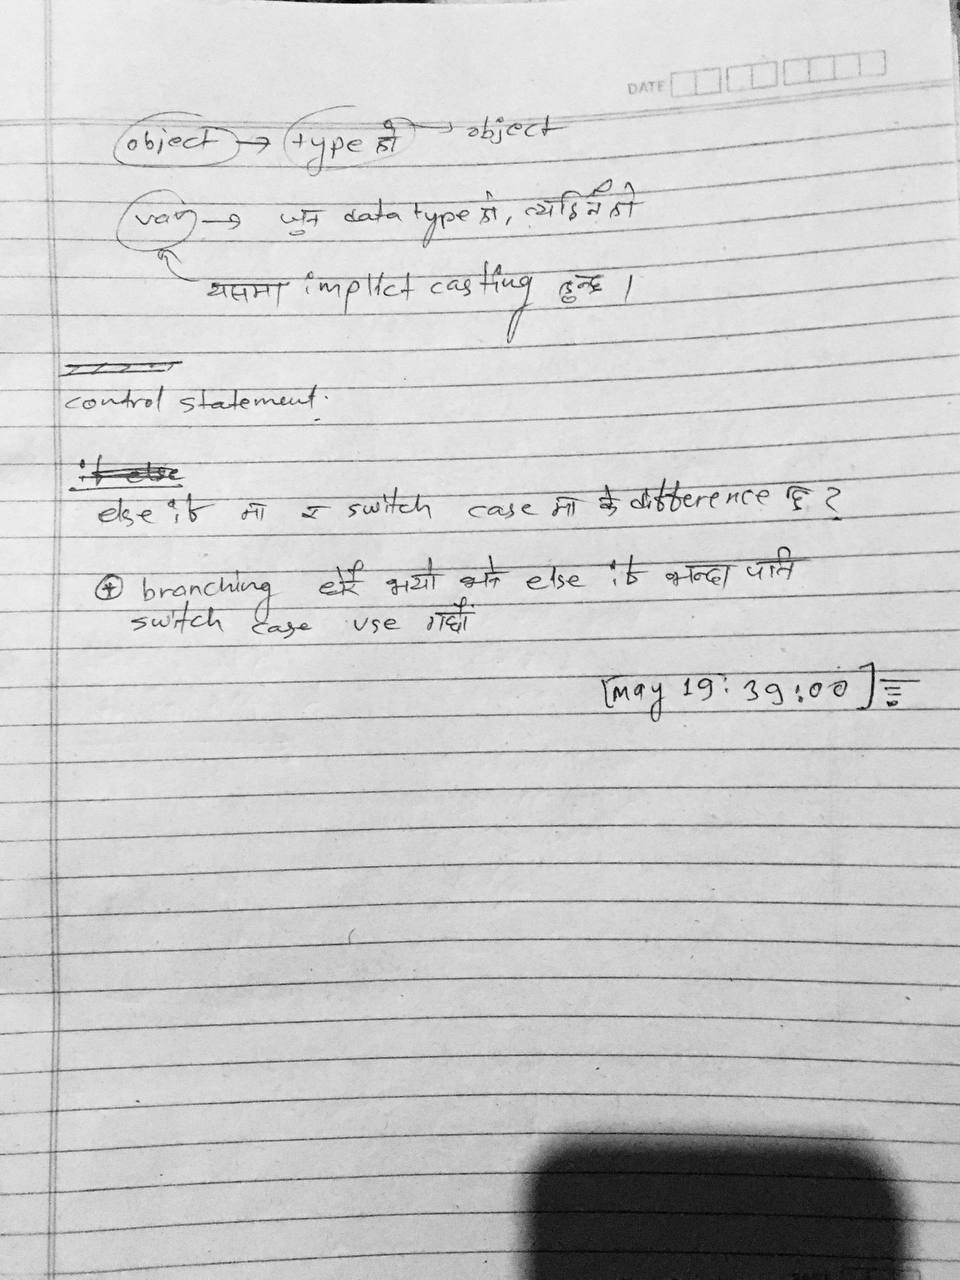 DATE
object → type हो → object
var → जुन data type हो, त्यहि नै हो
यसमा implict casting हुन्छ ।
control statement.
if else
else if मा र switch case मा के difference छ ?
+ branching धेरै भयो भने else if भन्दा पनि
switch case use गर्छौ
[May 19: 39:00]